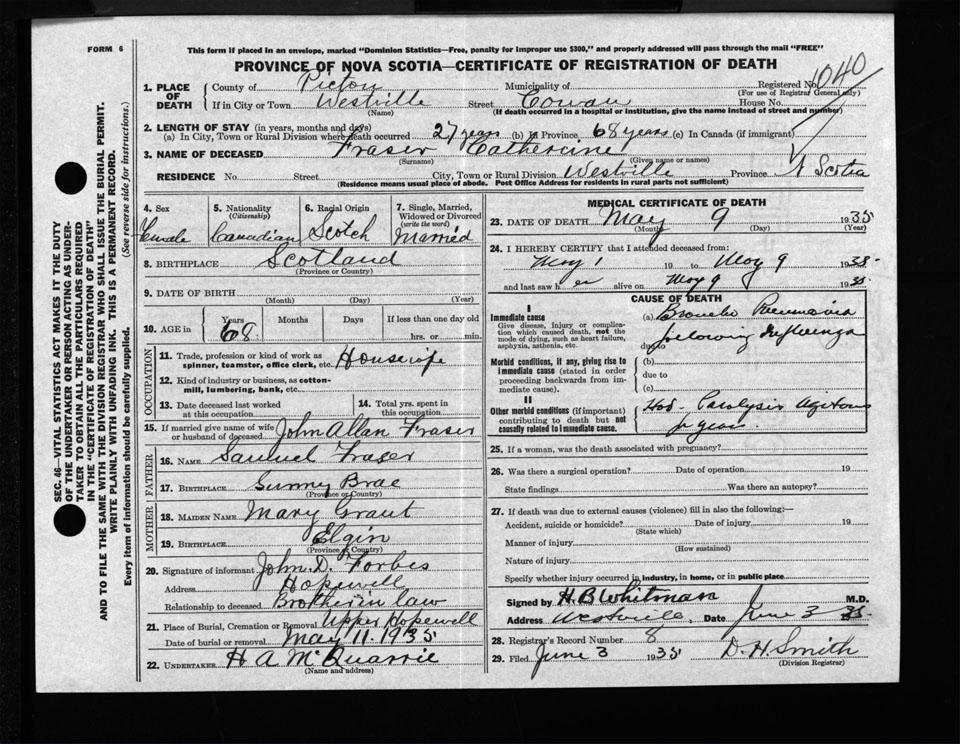 FORM 6
This form if placed in an envelope, marked "Dominion Statistics—Free, penalty for improper use $300," and properly addressed will pass through the mail "FREE"
PROVINCE OF NOVA SCOTIA—CERTIFICATE OF REGISTRATION OF DEATH
1. PLACE OF DEATH
County of Pictou Municipality of Registered No. 1040
(For use of Registrar General only)
If in City or Town Westville Street Cowan House No.
(Name) (If death occurred in a hospital or institution, give the name instead of street and number)
2. LENGTH OF STAY (in years, months and days)
(a) In City, Town or Rural Division where death occurred 27 years (b) In Province 68 years (c) In Canada (if immigrant)
3. NAME OF DECEASED Fraser Catherine
(Surname) (Given name or names)
RESIDENCE No. Street City, Town or Rural Division Westville Province N Scotia
(Residence means usual place of abode. Post Office Address for residents in rural parts not sufficient)
4. Sex
Female
5. Nationality
(Citizenship)
Canadian
6. Racial Origin
Scotch
7. Single, Married, Widowed or Divorced
(write the word)
Married
8. BIRTHPLACE Scotland
(Province or Country)
9. DATE OF BIRTH
(Month) (Day) (Year)
10. AGE in
Years Months Days If less than one day old
68 hrs. or min.
OCCUPATION
11. Trade, profession or kind of work as spinner, teamster, office clerk, etc. Housewife
12. Kind of industry or business, as cotton-mill, lumbering, bank, etc.
13. Date deceased last worked at this occupation
14. Total yrs. spent in this occupation
15. If married give name of wife or husband of deceased John Allan Fraser
FATHER
16. NAME Samuel Fraser
17. BIRTHPLACE Sunny Brae
(Province or Country)
MOTHER
18. MAIDEN NAME Mary Grant
19. BIRTHPLACE Elgin
(Province or Country)
20. Signature of informant John D. Forbes
Address Hopewell
Relationship to deceased Brother in law
21. Place of Burial, Cremation or Removal Upper Hopewell
Date of burial or removal May 11. 1935
22. UNDERTAKER H A McQuarrie
(Name and address)
MEDICAL CERTIFICATE OF DEATH
23. DATE OF DEATH May 9 1935
(Month) (Day) (Year)
24. I HEREBY CERTIFY that I attended deceased from:
May 1 19 to May 9 1935
and last saw her alive on May 9 1935
CAUSE OF DEATH
I
Immediate cause
Give disease, injury or complication which caused death, not the mode of dying, such as heart failure, asphyxia, asthenia, etc.
(a) Broncho Pneumonia
due to following Influenza
Morbid conditions, if any, giving rise to immediate cause (stated in order proceeding backwards from immediate cause).
(b)
due to
(c)
II
Other morbid conditions (if important) contributing to death but not causally related to immediate cause.
Had Paralysis Agitans
for years
25. If a woman, was the death associated with pregnancy?
26. Was there a surgical operation? Date of operation 19
State findings Was there an autopsy?
27. If death was due to external causes (violence) fill in also the following:—
Accident, suicide or homicide? Date of injury 19
(State which)
Manner of injury
(How sustained)
Nature of injury
Specify whether injury occurred in industry, in home, or in public place
Signed by H.B Whitman M.D.
Address Westville Date June 3 35
28. Registrar's Record Number 8
29. Filed June 3 1935 D. H. Smith
(Division Registrar)
SEC. 46—VITAL STATISTICS ACT MAKES IT THE DUTY
OF THE UNDERTAKER OR PERSON ACTING AS UNDER-
TAKER TO OBTAIN ALL THE PARTICULARS REQUIRED
IN THE "CERTIFICATE OF REGISTRATION OF DEATH"
AND TO FILE THE SAME WITH THE DIVISION REGISTRAR WHO SHALL ISSUE THE BURIAL PERMIT.
WRITE PLAINLY WITH UNFADING INK. THIS IS A PERMANENT RECORD.
Every item of information should be carefully supplied. (See reverse side for instructions.)